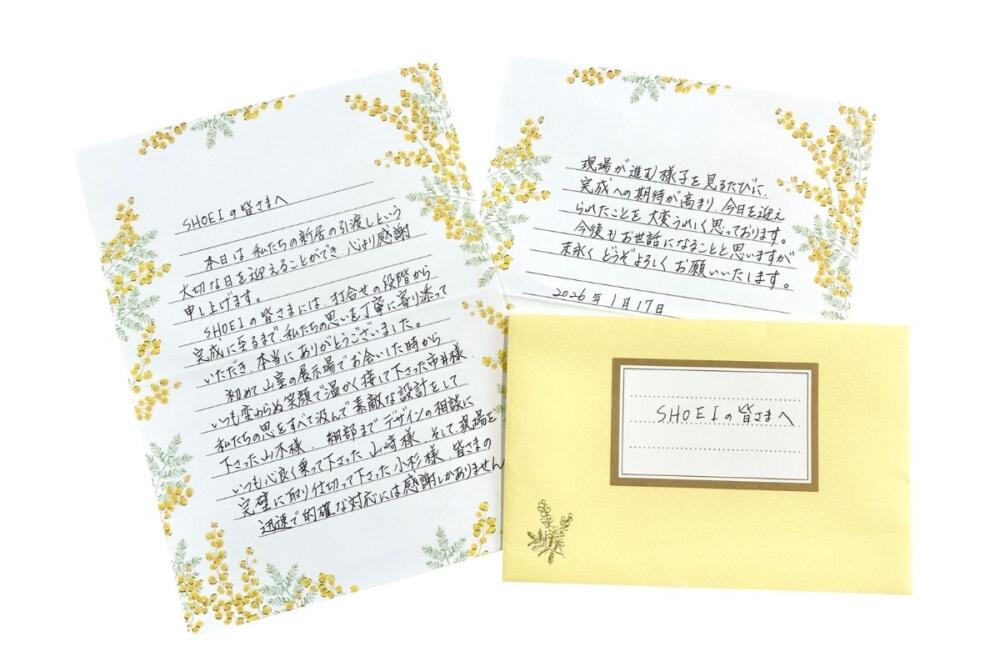 SHOEIの皆さまへ
本日は私たちの新居の引渡しという
大切な日を迎えることができ、心より感謝
申し上げます。
SHOEIの皆さまには、打合せの段階から
完成に至るまで、私たちの思いを丁寧に寄り添って
いただき、本当にありがとうございました。
初めて山室の展示場でお会いした時から
いつも変わらぬ笑顔で温かく接して下さった市井様、
私たちの思をすべて汲んで素敵な設計をして
下さった山木様、細部までデザインの相談に
いつも心良く乗って下さった山崎様、そして現場を
完璧に取り仕切って下さった小杉様、皆さまの
迅速で的確な対応には感謝しかありません
現場が進む様子を見るたびに、
完成への期待が高まり、今日を迎え
られたことを大変うれしく思っております。
今後もお世話になることと思いますが
末永くどうぞよろしくお願いいたします。
2026年1月17日
SHOEIの皆さまへ